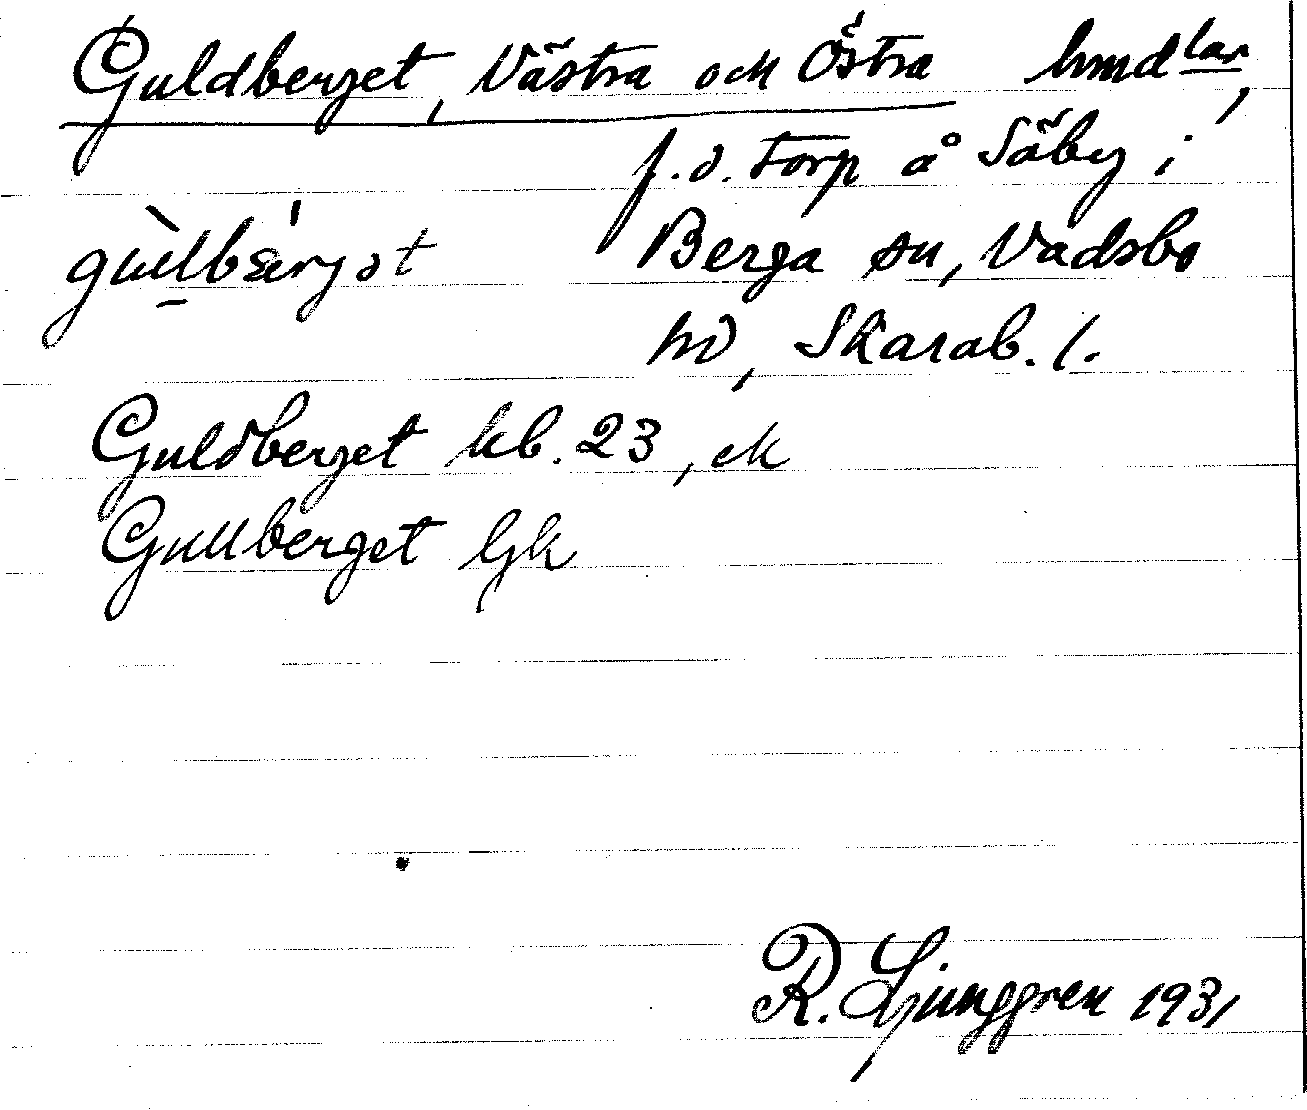 Guldberget, Västra och Östra hmdlar,
f.d. torp å Säby i
gulbærjət Berga sn, Vadsbo
hd, Skarab. l.
Guldberget kb. 23, ek
Gullberget Gk
R. Ljunggren 1931